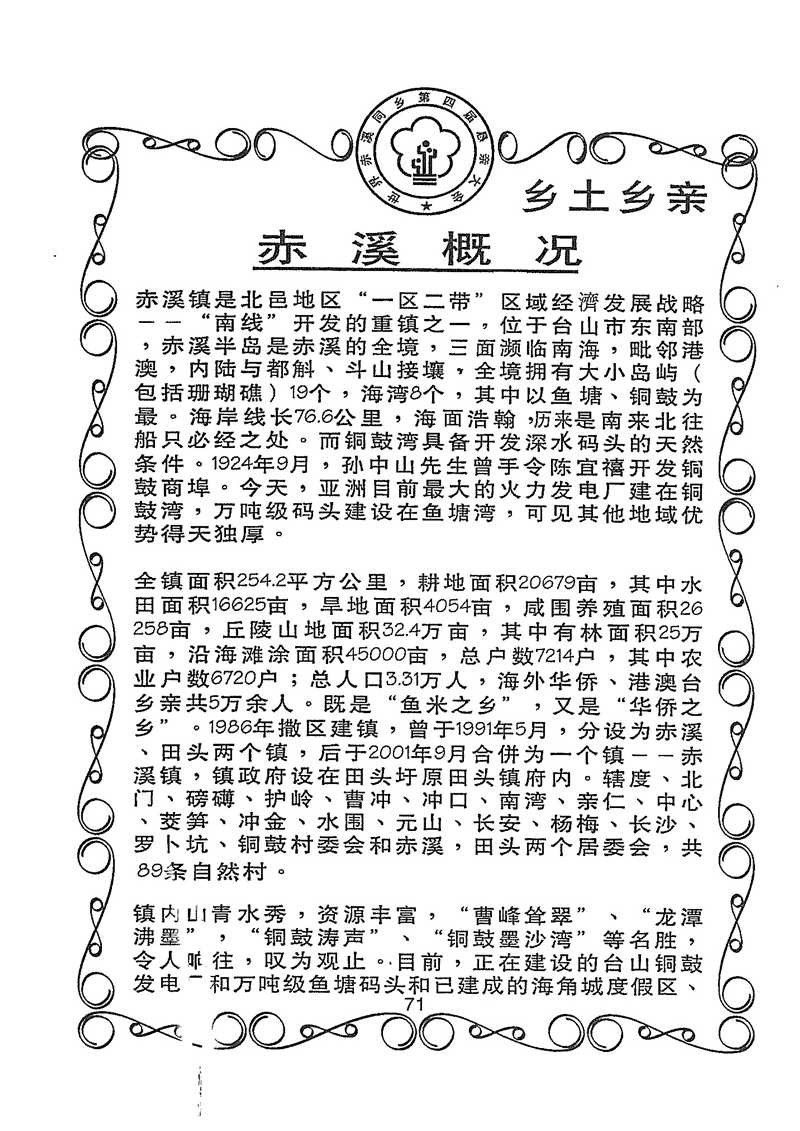 世界赤溪同乡第四届恳亲大会
乡土乡亲
赤溪概况
赤溪镇是北邑地区“一区二带”区域经濟发展战略
——“南线”开发的重镇之一，位于台山市东南部
，赤溪半岛是赤溪的全境，三面濒临南海，毗邻港
澳，内陆与都斛、斗山接壤，全境拥有大小岛屿（
包括珊瑚礁）19个，海湾8个，其中以鱼塘、铜鼓为
最。海岸线长76.6公里，海面浩翰，历来是南来北往
船只必经之处。而铜鼓湾具备开发深水码头的天然
条件。1924年9月，孙中山先生曾手令陈宜禧开发铜
鼓商埠。今天，亚洲目前最大的火力发电厂建在铜
鼓湾，万吨级码头建设在鱼塘湾，可见其他地域优
势得天独厚。
全镇面积254.2平方公里，耕地面积20679亩，其中水
田面积16625亩，旱地面积4054亩，咸围养殖面积26
258亩，丘陵山地面积32.4万亩，其中有林面积25万
亩，沿海滩涂面积45000亩，总户数7214户，其中农
业户数6720户；总人口3.31万人，海外华侨、港澳台
乡亲共5万余人。既是“鱼米之乡”，又是“华侨之
乡”。1986年撒区建镇，曾于1991年5月，分设为赤溪
、田头两个镇，后于2001年9月合併为一个镇——赤
溪镇，镇政府设在田头圩原田头镇府内。辖度、北
门、磅礴、护岭、曹冲、冲口、南湾、亲仁、中心
、茭笋、冲金、水围、元山、长安、杨梅、长沙、
罗卜坑、铜鼓村委会和赤溪，田头两个居委会，共
89条自然村。
镇内山青水秀，资源丰富，“曹峰耸翠”、“龙潭
沸墨”，“铜鼓涛声”、“铜鼓墨沙湾”等名胜，
令人 往，叹为观止。目前，正在建设的台山铜鼓
发电 和万吨级鱼塘码头和已建成的海角城度假区、
71